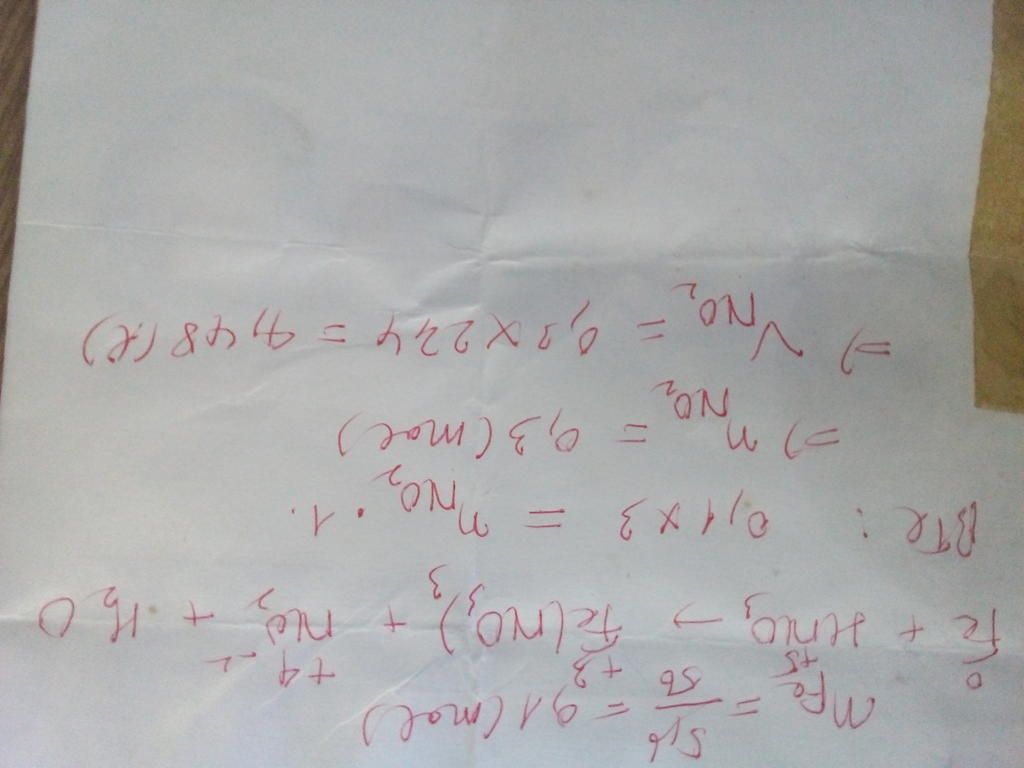 n Fe = 5,6/56 = 0,1 (mol)
0 +5 +3 +4 -2
Fe + HNO3 → Fe(NO3)3 + NO2 + H2O
BTe : 0,1 x 3 = nNO2 . 1.
=> nNO2 = 0,3 (mol)
=> VNO2 = 0,2 x 22,4 = 4,48 (l)